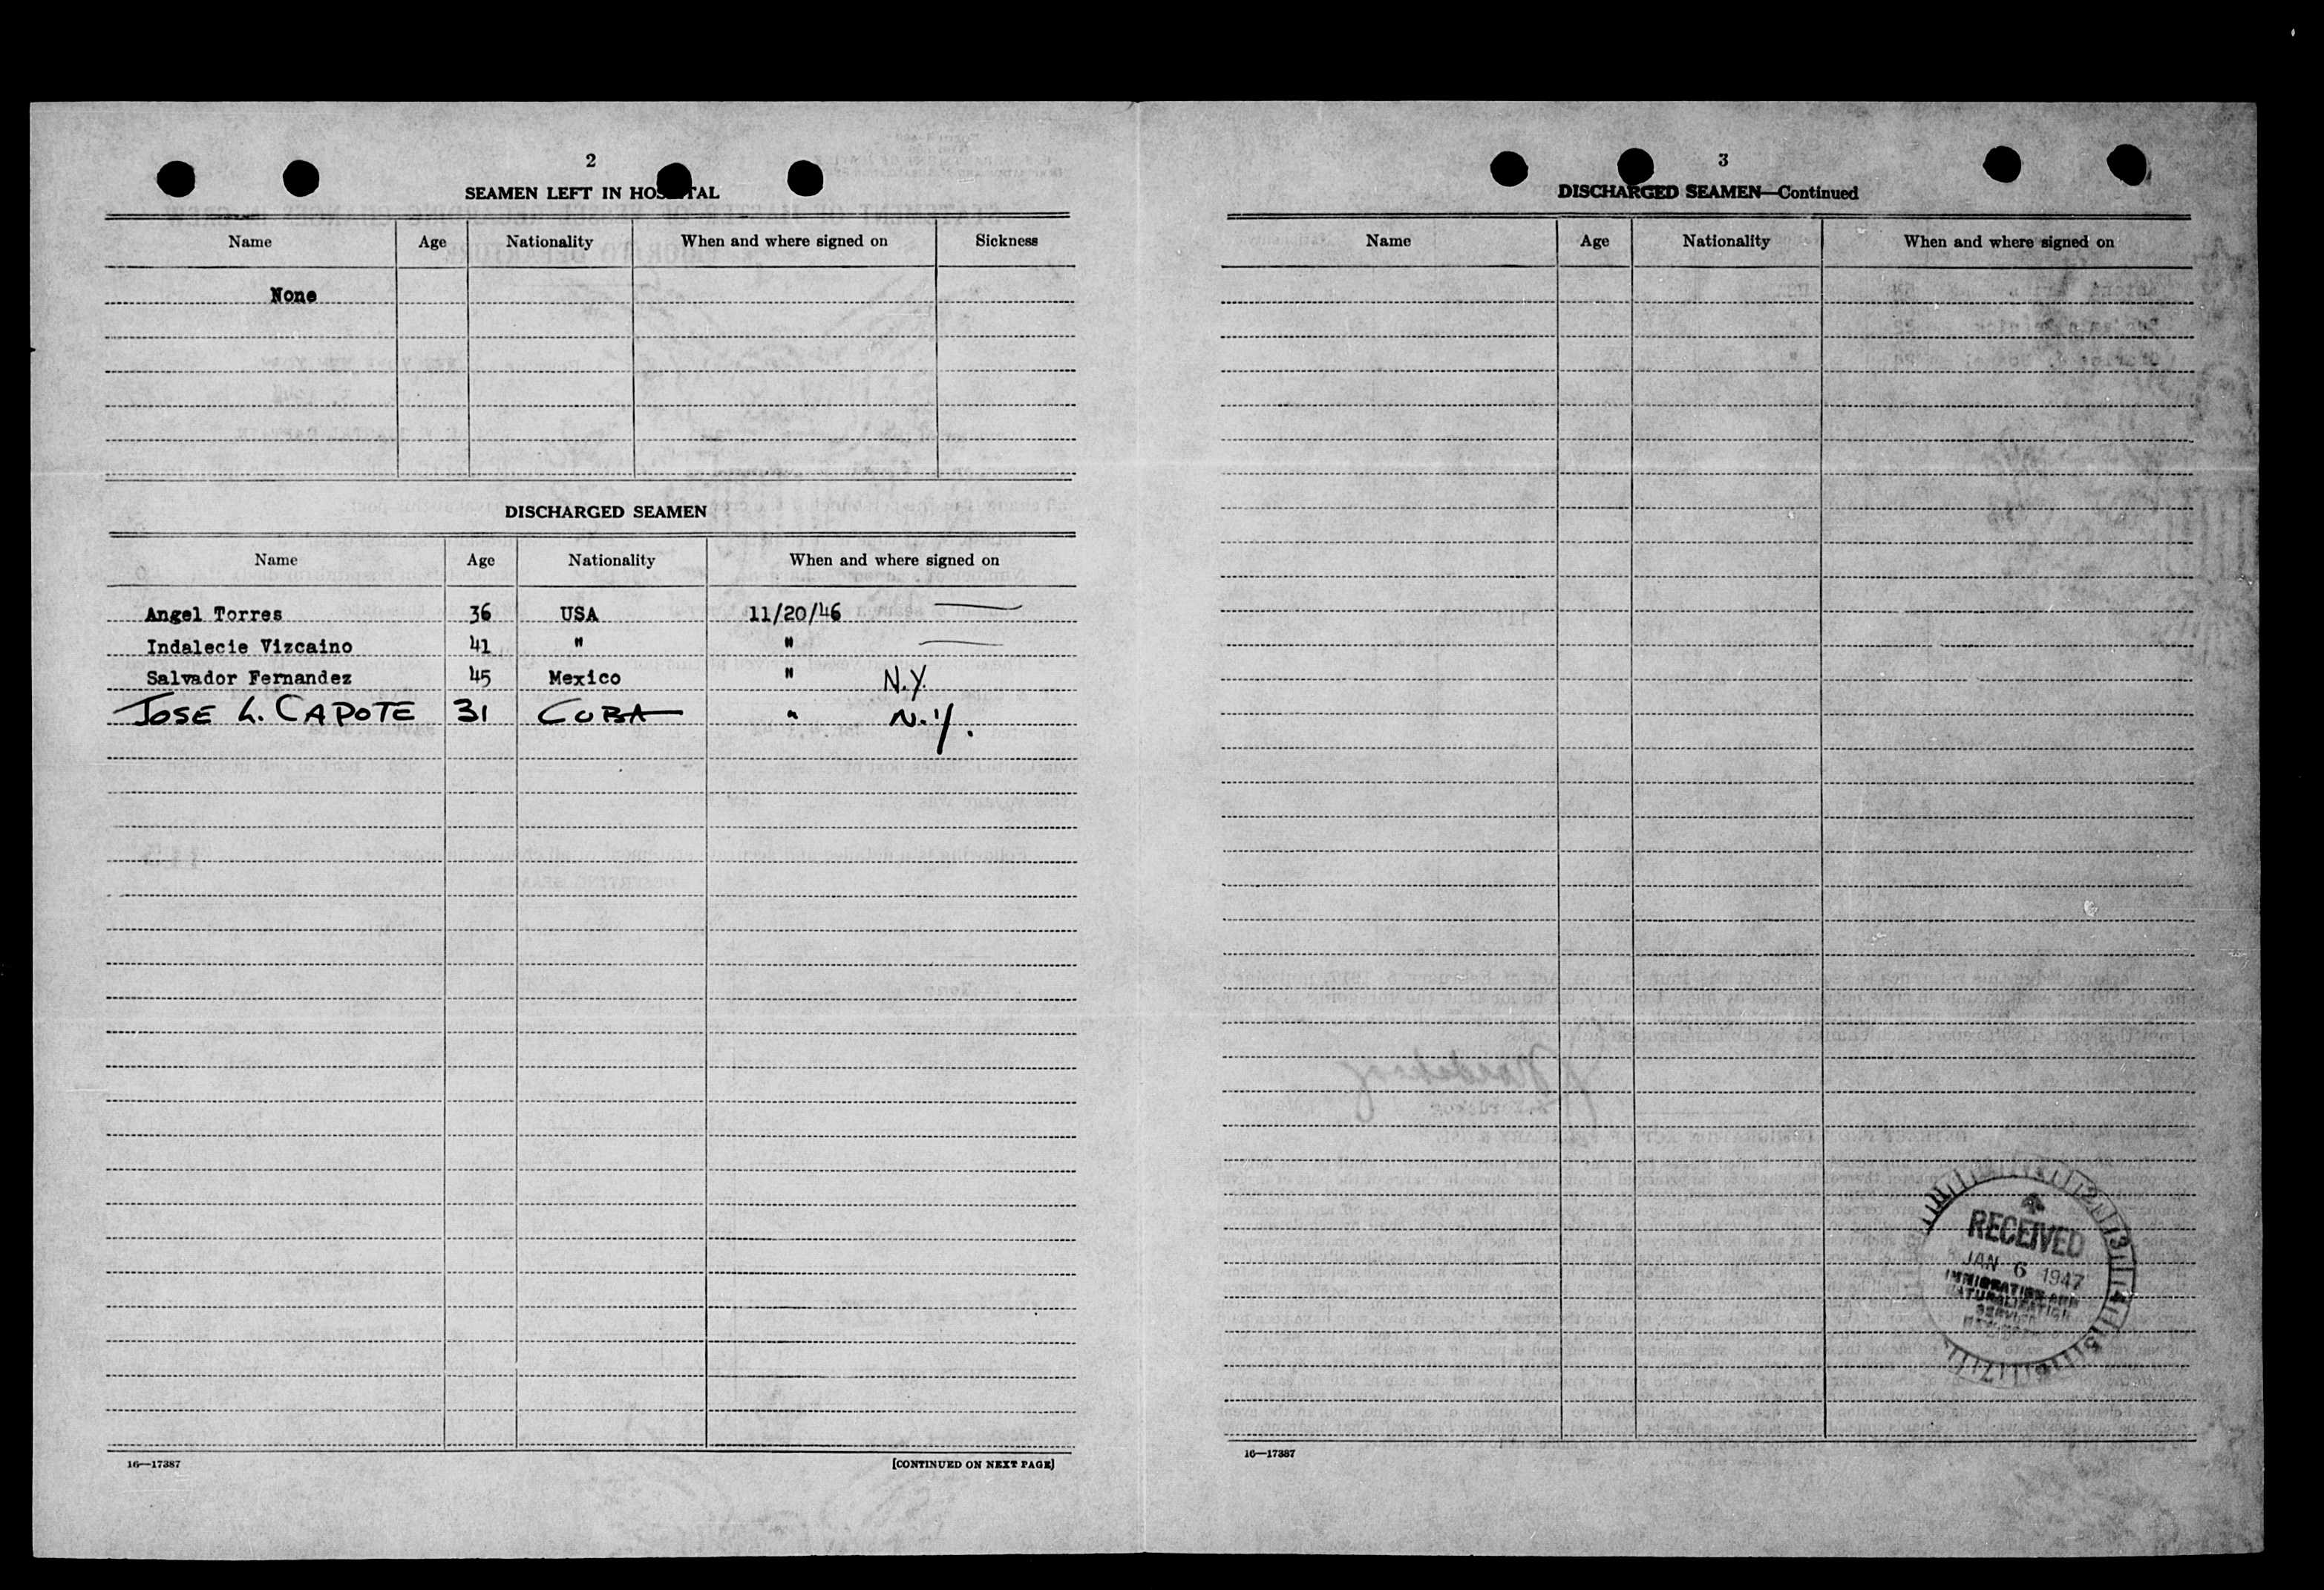 2
SEAMEN LEFT IN HOSPITAL
Name Age Nationality When and where signed on Sickness
None
DISCHARGED SEAMEN
Name Age Nationality When and where signed on
Angel Torres 36 USA 11/20/46 —
Indalecie Vizcaino 41 " " —
Salvador Fernandez 45 Mexico " N.Y.
JOSE L. CAPOTE 31 CUBA " N.Y.
16—17387 [CONTINUED ON NEXT PAGE]
3
DISCHARGED SEAMEN—Continued
Name Age Nationality When and where signed on
RECEIVED
JAN 6 1947
IMMIGRATION AND
NATURALIZATION
SERVICE
16—17387